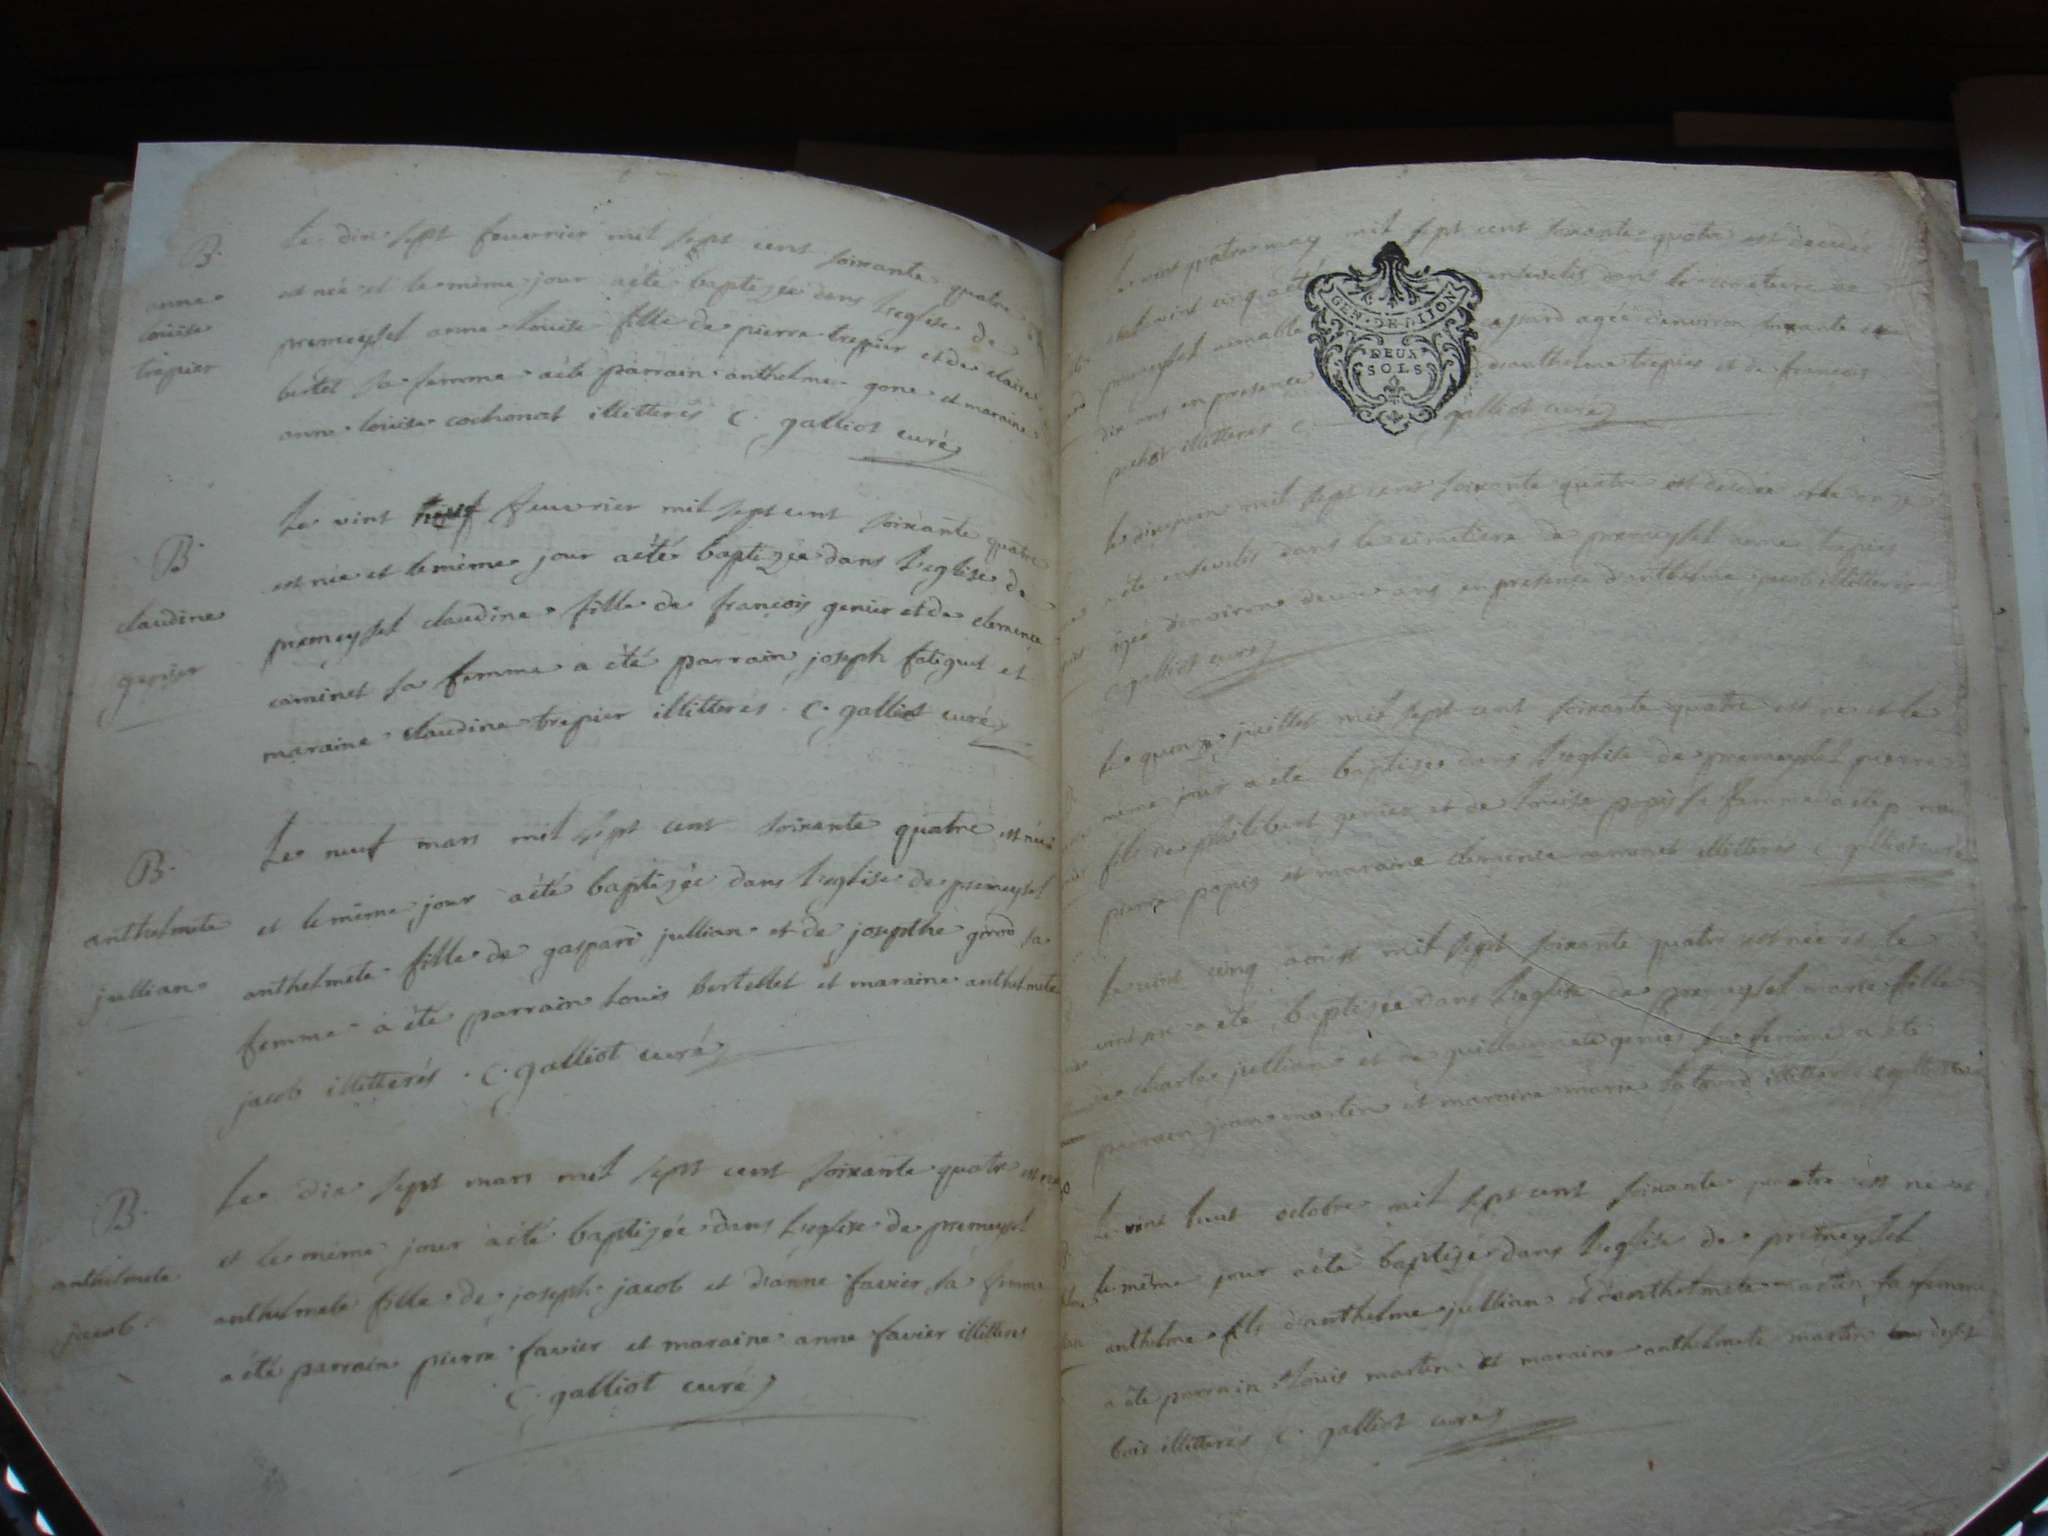 B.
anne
louise
trepier
Le dix sept feuvrier mil sept cent soixante quatre
est née et le même jour a été baptizée dans l'eglise de
premeyssel anne louise fille de pierre trepier et de claire
bertet sa femme a été parrain anthelme gone et maraine
anne louise cochonat illitterés C. galliot curé
B.
claudine
genier
Le vint neuf feuvrier mil sept cent soixante quatre
est née et le même jour a été baptizée dans l'eglise de
premeyssel claudine fille de françois genier et de clemence
caminet sa femme a été parrain joseph fatiguet et
maraine claudine trepier illitterés. C. galliot curé
B.
anthelmete
jullian
Le neuf mars mil sept cent soixante quatre est née
et le même jour a été baptizée dans l'eglise de premeyssel
anthelmete fille de gaspard jullian et de josepthe girod sa
femme a été parrain louis bertellet et maraine anthelmete
jacob illitterés. C. galliot curé
B.
anthelmete
jacob
Le dix sept mars mil sept cent soixante quatre est née
et le même jour a été baptizée dans l'eglise de premeyssel
anthelmete fille de joseph jacob et d'anne favier sa femme
a été parrain pierre favier et maraine anne favier illitterés
C. galliot curé
Le vint quatre may mil sept cent soixante quatre est decedée
et le vint cinq a été ensevelie dans le cimetiere de
premeyssel aagée d'environ soixante et
dix ans en presence d'anthelme trepier et de francois
illitterés C. galliot curé
GEN. DE DIJON
DEUX
SOLS
Le juin mil sept cent soixante quatre est decedée et le onze
a été ensevelie dans le cimetiere de premeyssel anne trepier
agée d'environ deux ans en presence d'anthelme jacob illitteré
C. galliot curé
Le quinze juillet mil sept cent soixante quatre est né et le
meme jour a été baptizé dans l'eglise de premeyssel pierre
fils de philibert genier et de louise papis sa femme a été p
pierre papis et maraine clemence caminet illitterés C. galliot curé
Le vint cinq aoust mil sept soixante quatre est née et le
vint six a été baptizée dans l'eglise de premeyssel marie fille
de charle jullian et de guillaumete genier sa femme a été
parrain jean martin et maraine marie illitterés C. galliot curé
Le vint huit octobre mil sept cent soixante quatre est né et
le même jour a été baptizé dans l'eglise de premeyssel
anthelme fils d'anthelme jullian et d'anthelmete martin sa femme
a été parrain louis martin et maraine anthelmete martin
illitterés C. galliot curé